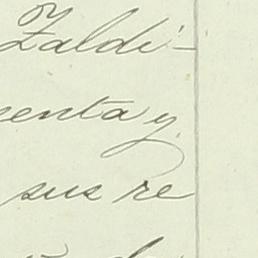 Zaldi-
enta y
sus re